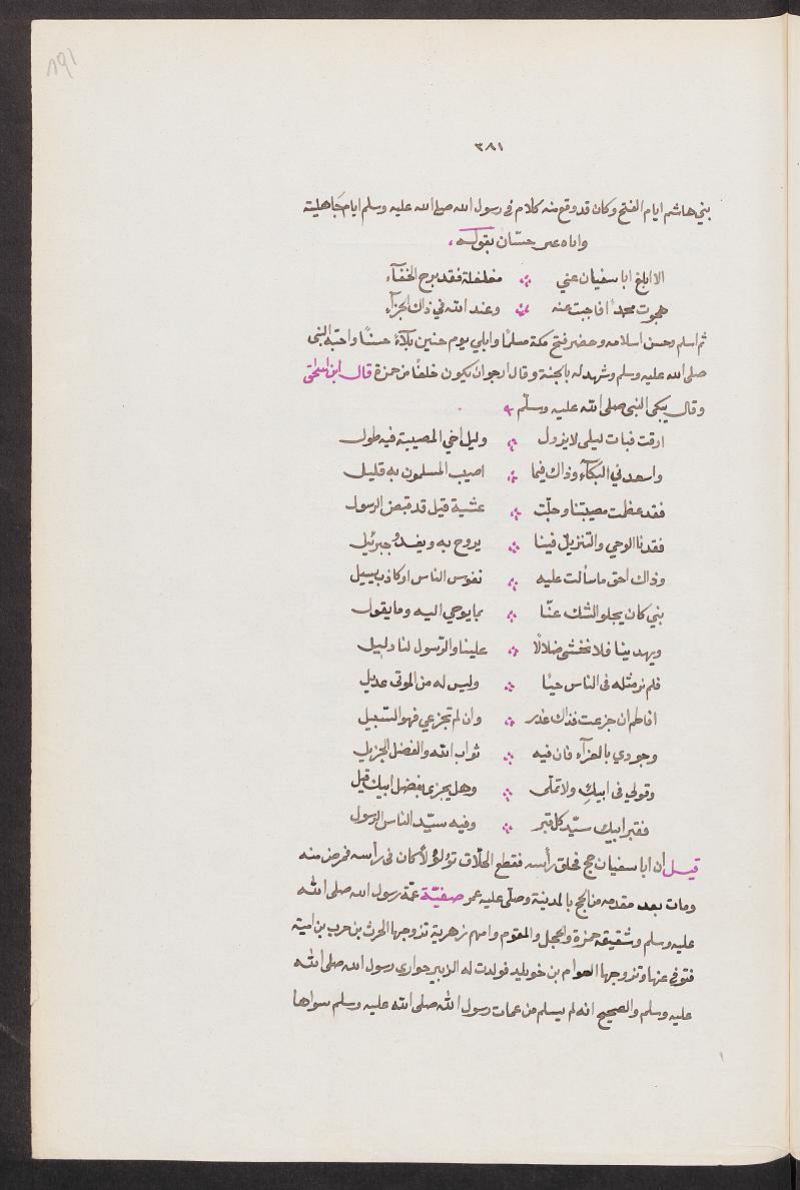 ١٩١
٣٨١
بني هاشم ايام الفتح وكان قد وقع منه كلام فى رسول الله صلى الله عليه وسلم ايام جاهليته
واياه عنى حسّان بقوله
الا ابلغ ابا سفيان عني مغلغلة فقد برح الخفآء
هجوت محمدًا فاجبت عنه وعند الله في ذاك الجزآء
ثم اسلم وحسن اسلامه وحضر فتح مكة مسلمًا وابلي يوم حنين بلآءً حسنًا واحبّه النبى
صلى الله عليه وسلم وشهد له بالجنة وقال ارجو ان يكون خلفًا من حمزة قال ابن اسحٰق
وقال يبكى النبى صلى الله عليه وسلّم
ارقت فبات ليلى لا يزول وليل اخي المصيبة فيه طول
واسعدني البكآء وذاك فيما اصيب المسلمون به قليل
فقد عظمت مصيبتنا وجلّت عشية قيل قد قبض الرسول
فقدنا الوحي والتنزيل فينا يروح به ويغدُ جبرئيل
وذاك احق ما سألت عليه نفوس الناس او كادت تسيل
نبي كان يجلو الشك عنّا بما يوحي اليه وما يقول
ويهدينا فلا نخشى ضلالًا علينا والرّسول لنا دليل
فلم نر مثله فى الناس حيًا وليس له من الموتى عديل
افاطم ان جزعت فذاك عذر وان لم تجزعي فهو السّبيل
وجودي بالعزآء فان فيه ثواب الله والفضل الجزيل
وقولي فى ابيكِ ولا تملّى وهل يجزى بفضل ابيك قيل
فقبر ابيك سيّد كل قبر وفيه سيّد الناس الرسول
قيل أن ابا سفيان حج فحلق رأسه فقطع الحلّاق ثؤلولًا كان فى رأسه فمرض منه
ومات بعد مقدمه من الحج بالمدينة وصلّى عليه عمر صفيّة عمّة رسول الله صلى الله
عليه وسلم وشقيقة حمزة والحجل والمقوم وامهم زهرية تزوجها الحرث بن حرب بن امية
فتوفى عنها وتزوجها العوام بن خويلد فولدت له الزبير حوارى رسول الله صلى الله
عليه وسلم والصحيح انه لم يسلم من عمات رسول الله صلى الله عليه وسلم سواها